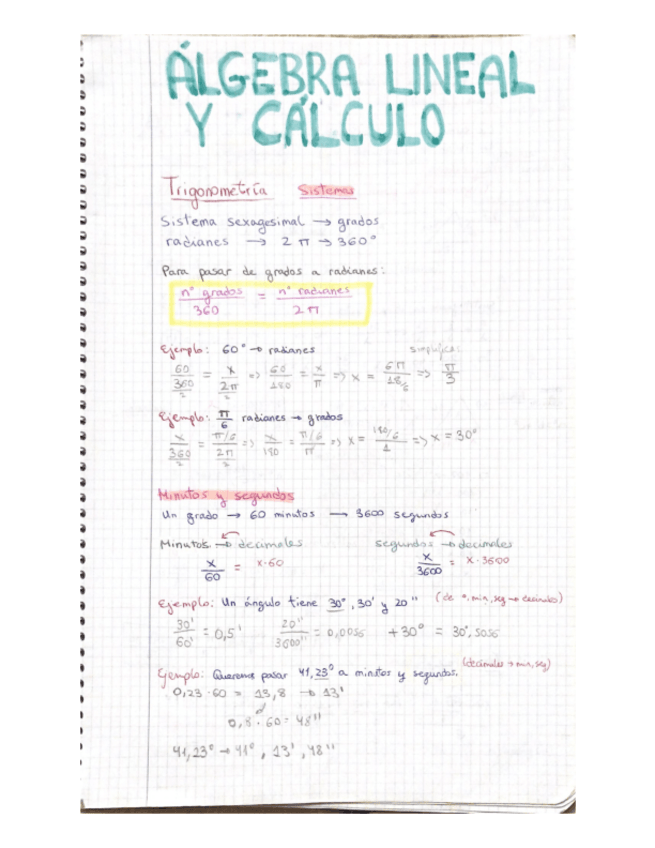 ÁLGEBRA LINEAL
Y CÁLCULO
Trigonometría Sistemas
Sistema sexagesimal → grados
radianes → 2 π → 360°
Para pasar de grados a radianes:
nº grados / 360 = nº radianes / 2π
Ejemplo: 60° → radianes
60/360 = x/2π => 60/180 = x/π => x = 6π/18 => π/3
Ejemplo: π/6 radianes → grados
x/360 = π/6 / 2π => x/180 = π/6 / π => x = 180/6 / 1 => x = 30°
Minutos y segundos
Un grado → 60 minutos → 3600 segundos
Minutos → decimales segundos → decimales
x/60 = x·60 x/3600 = x·3600
Ejemplo: Un ángulo tiene 30°, 30' y 20'' (de °, min, seg → decimales)
30'/60' = 0,5' 20''/3600'' = 0,0056 +30° = 30°,5056
Ejemplo: Queremos pasar 41,23° a minutos y segundos. (decimales → min, seg)
0,23 · 60 = 13,8 → 13'
0,8 · 60 = 48''
41,23° → 41°, 13', 48''